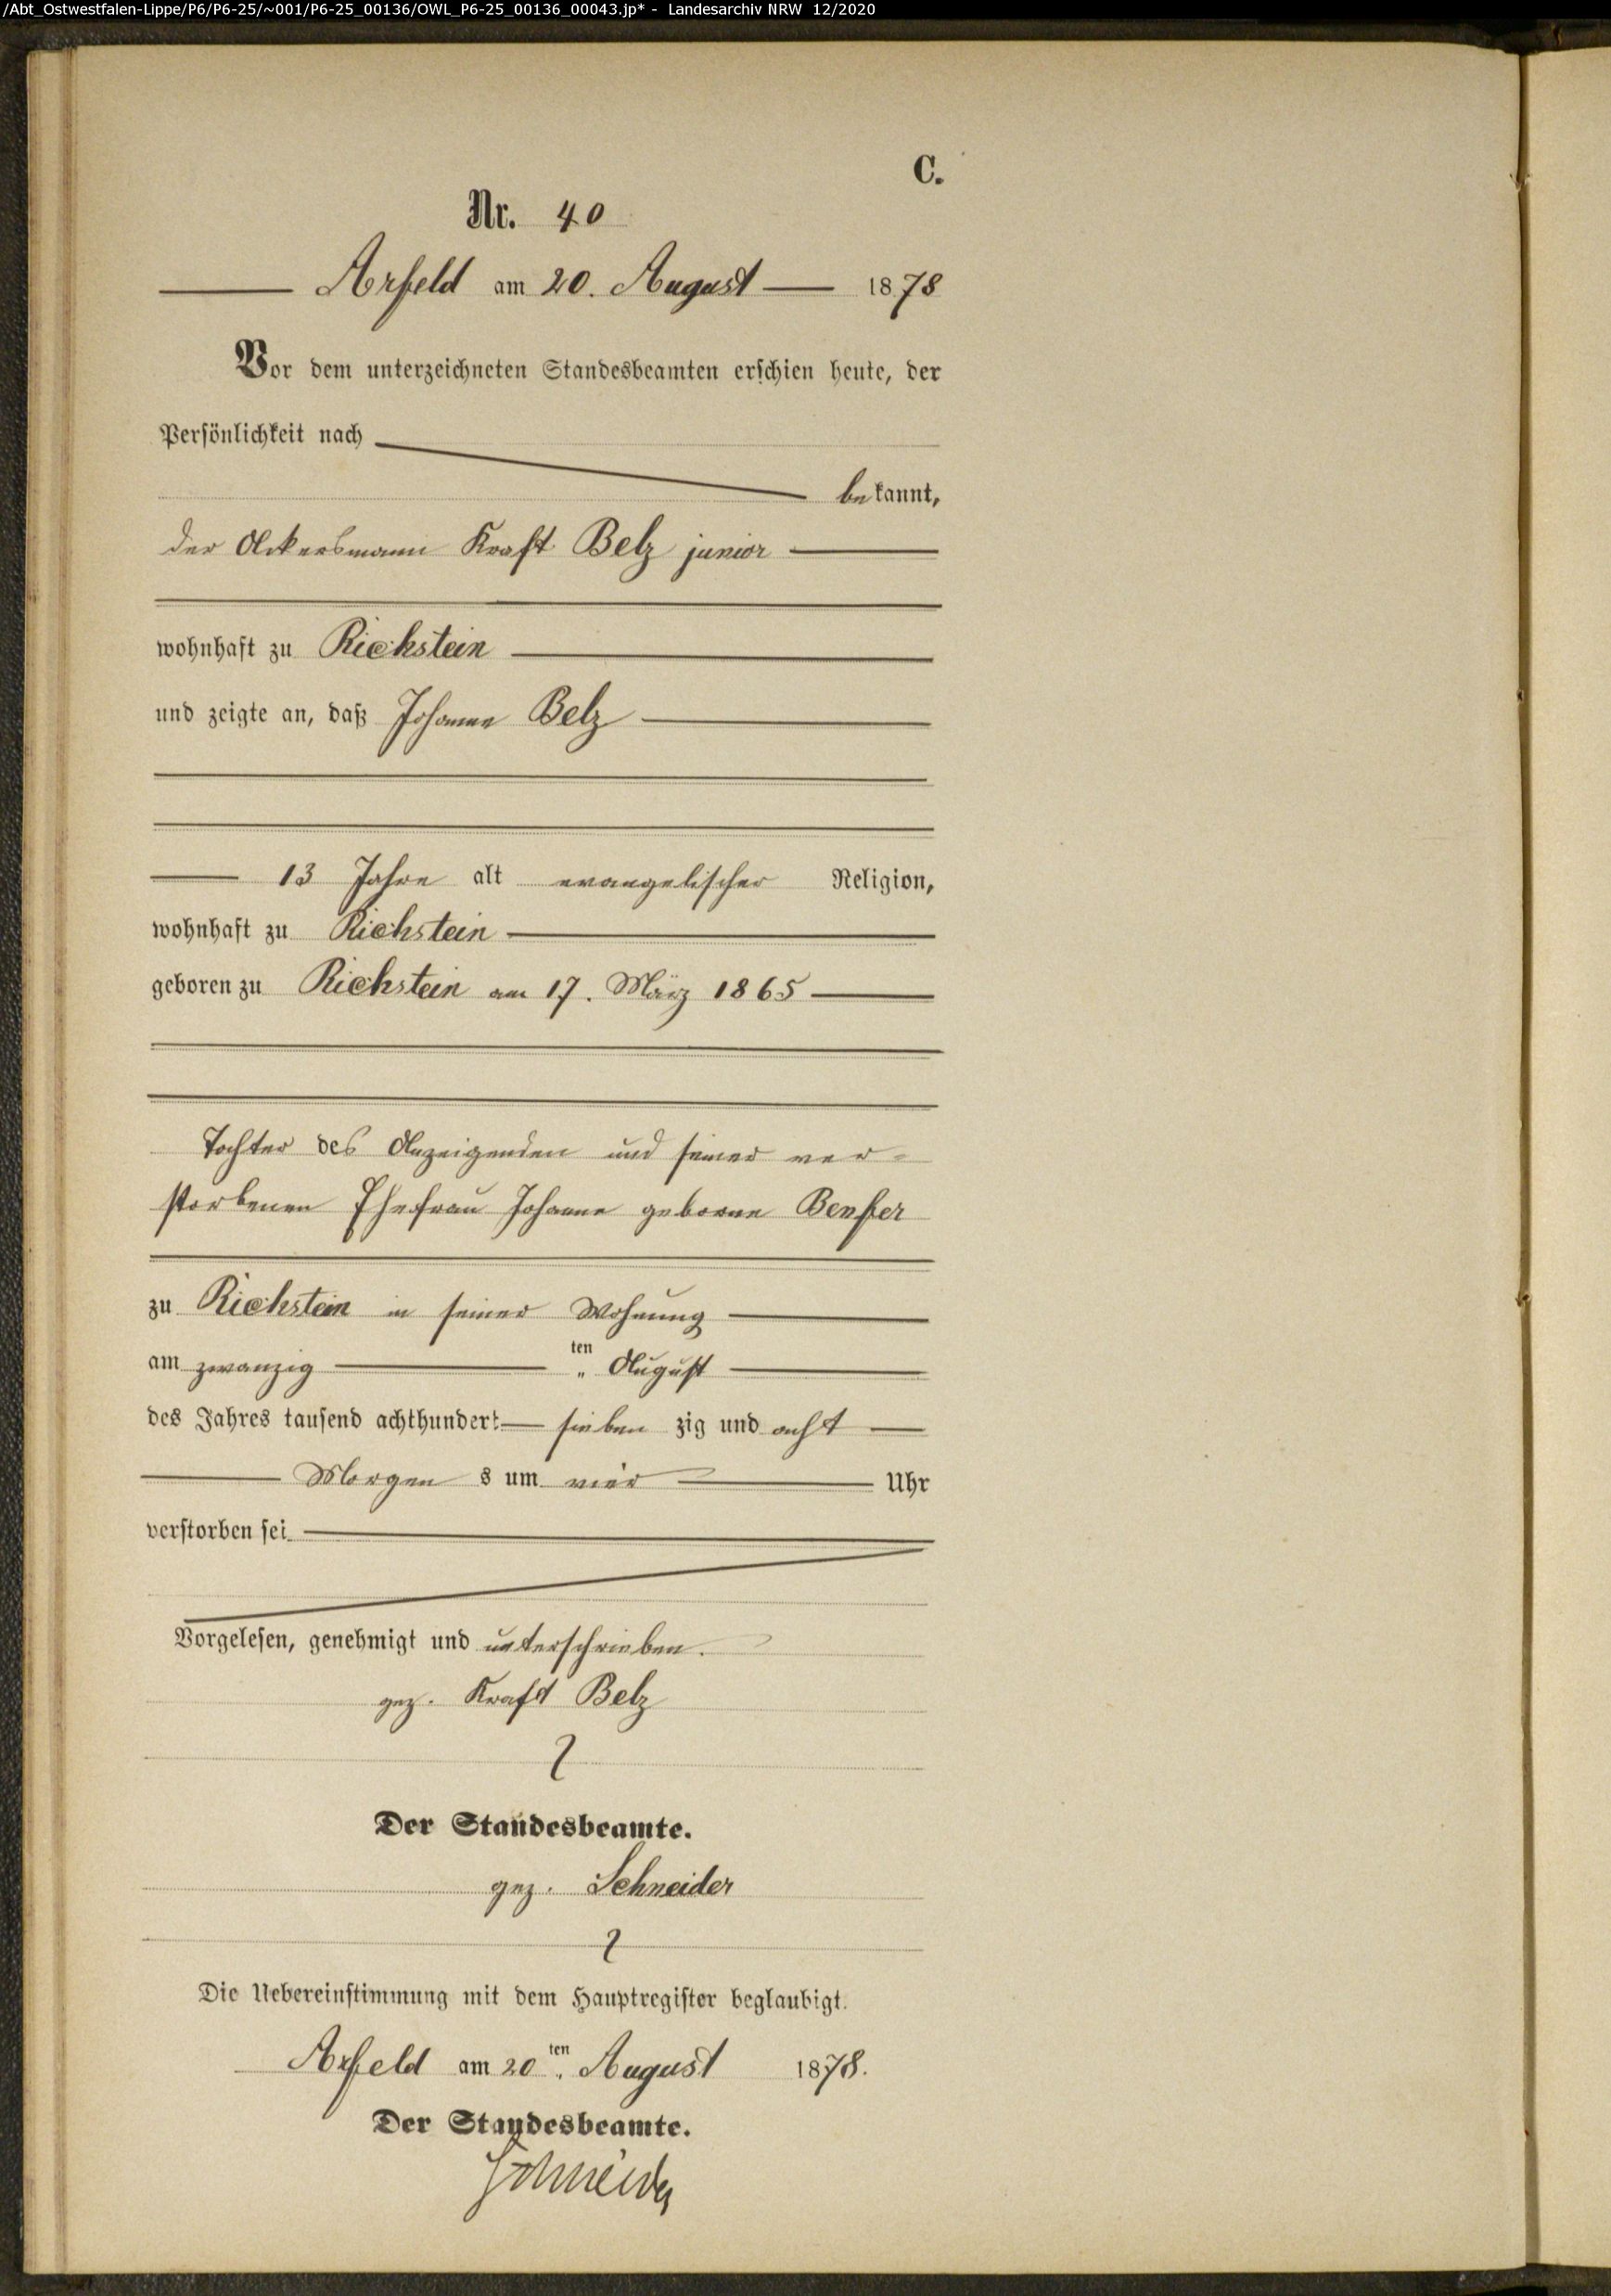 /Abt_Ostwestfalen-Lippe/P6/P6-25/~001/P6-25_00136/OWL_P6-25_00136_00043.jp* - Landesarchiv NRW 12/2020
C.
Nr. 40
Arfeld am 20. August 1878
Vor dem unterzeichneten Standesbeamten erschien heute, der
Persönlichkeit nach
bekannt,
der Ackersmann Kraft Belz junior
wohnhaft zu Richstein
und zeigte an, daß Johanne Belz
13 Jahre alt evangelischer Religion,
wohnhaft zu Richstein
geboren zu Richstein am 17. März 1865
Tochter des Anzeigenden und seiner ver-
storbenen Ehefrau Johanne geborne Benfer
zu Richstein in seiner Wohnung
am zwanzig ten " August
des Jahres tausend achthundert sieben zig und acht
Morgen s um vier Uhr
verstorben sei
Vorgelesen, genehmigt und unterschrieben.
gez. Kraft Belz
Der Standesbeamte.
gez. Schneider
Die Uebereinstimmung mit dem Hauptregister beglaubigt.
Arfeld am 20ten August 1878.
Der Standesbeamte.
Schneider